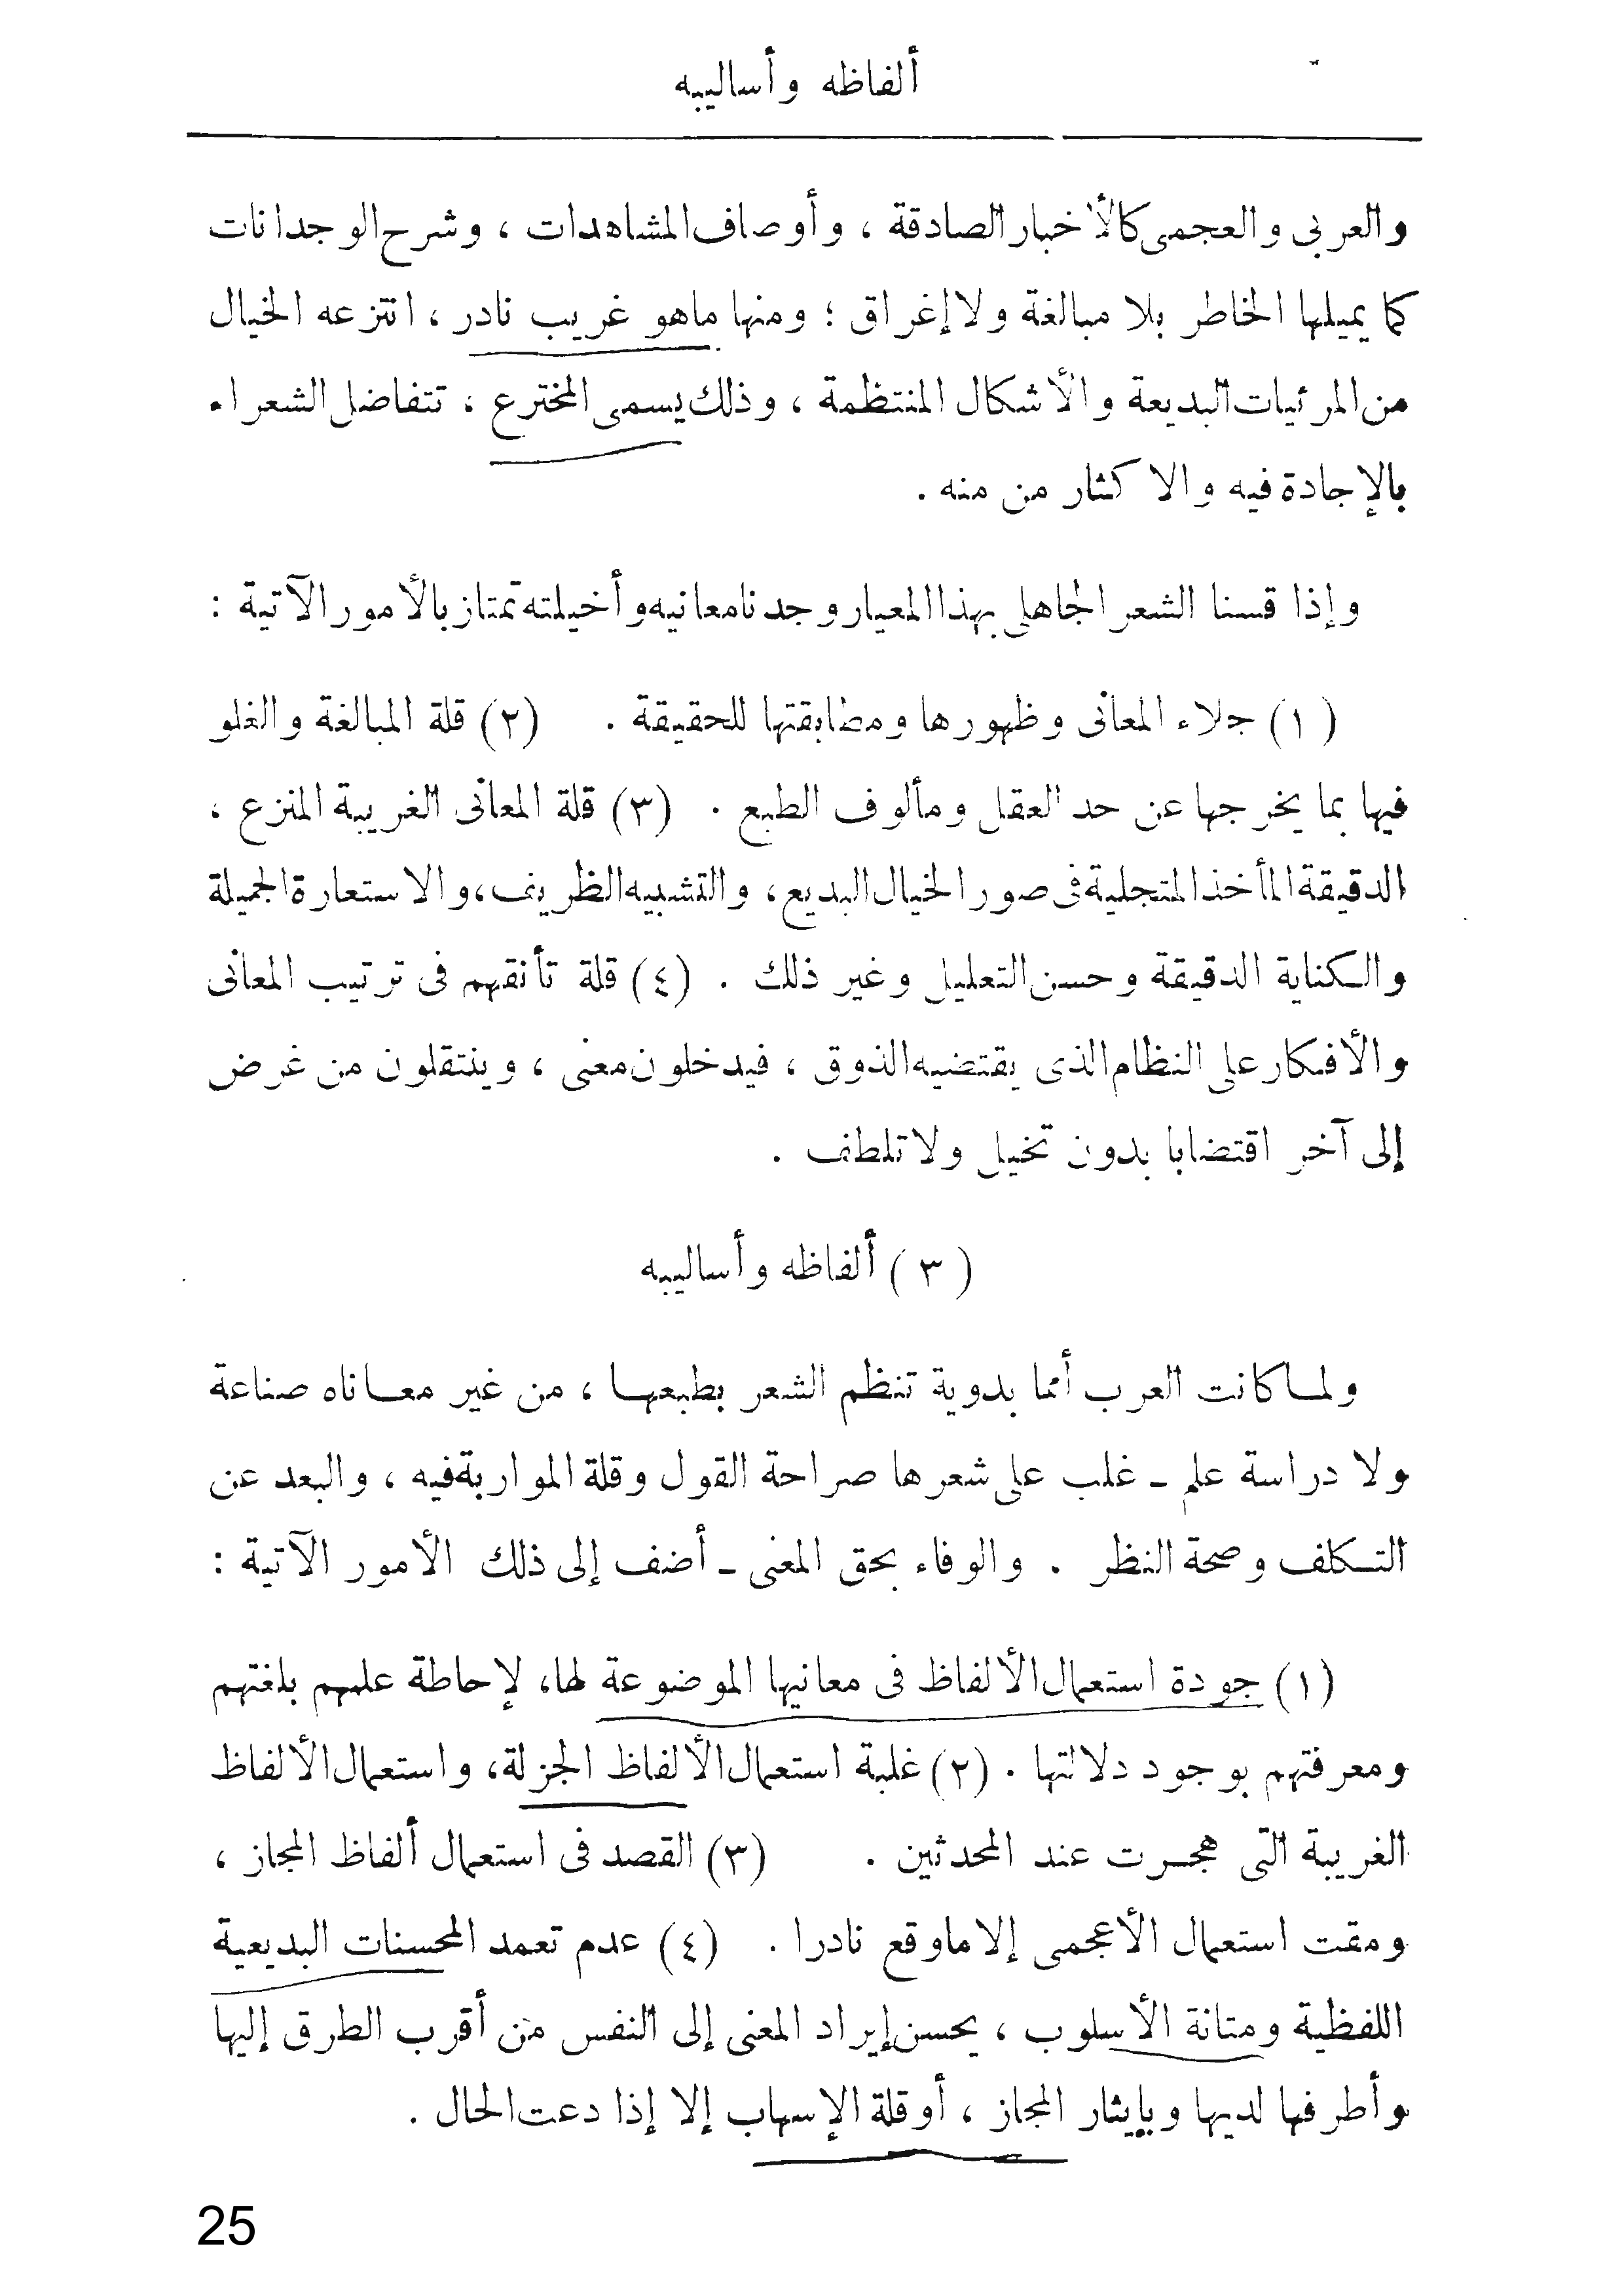 ألفاظه وأساليبه
والعربى والعجمى كالأخبار الصادقة ، وأوصاف المشاهدات ، وشرح الوجدانات
كما يميلها الخاطر بلا مبالغة ولا إغراق ؛ ومنها ماهو غريب نادر ، انتزعه الخيال
من المرئيات البديعة والأشكال المنتظمة ، وذلك يسمى المخترع ، تتفاضل الشعراء
بالإجادة فيه والاكثار من منه .
وإذا قسنا الشعر الجاهلى بهذا المعيار وجدنا معانيه وأخيلته تمتاز بالأمور الآتية :
(١) جلاء المعانى وظهورها ومطابقتها للحقيقة . (٢) قلة المبالغة والغلو
فيها بما يخرجها عن حد العقل ومألوف الطبع . (٣) قلة المعانى الغريبة المنزع ،
الدقيقة المأخذ المتجلية فى صور الخيال البديع ، والتشبيه الظريف ، والاستعارة الجميلة
والكناية الدقيقة وحسن التعليل وغير ذلك . (٤) قلة تأنقهم فى ترتيب المعانى
والأفكار على النظام الذى يقتضيه الذوق ، فيدخلون معنى ، وينتقلون من غرض
إلى آخر اقتضابا بدون تخيل ولا تلطف .
(٣) ألفاظه وأساليبه
ولما كانت العرب أمما بدوية تنظم الشعر بطبعها ، من غير معاناه صناعة
ولا دراسة علم - غلب على شعرها صراحة القول وقلة المواربة فيه ، والبعد عن
التكلف وصحة النظر . والوفاء بحق المعنى - أضف إلى ذلك الأمور الآتية :
(١) جودة استعمال الألفاظ فى معانيها الموضوعة لها، لإحاطة علمهم بلغتهم
ومعرفتهم بوجود دلالتها . (٢) غلبة استعمال الألفاظ الجزلة، واستعمال الألفاظ
الغريبة التى هجرت عند المحدثين . (٣) القصد فى استعمال ألفاظ المجاز ،
ومقت استعمال الأعجمى إلا ماوقع نادرا . (٤) عدم تعمد المحسنات البديعية
اللفظية ومتانة الأسلوب ، يحسن إيراد المعنى إلى النفس من أقرب الطرق إليها
وأطرفها لديها وبإيثار المجاز ، أو قلة الإسهاب إلا إذا دعت الحال .
25